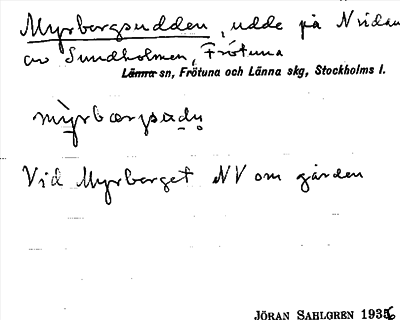 Myrbergsudden, udde på N sidan
av Sundholmen, Frötuna
Länna sn, Frötuna och Länna skg, Stockholms l.
mỳrbærgsu̥dn̥
Vid Myrberget NV om gården
JÖRAN SAHLGREN 1936